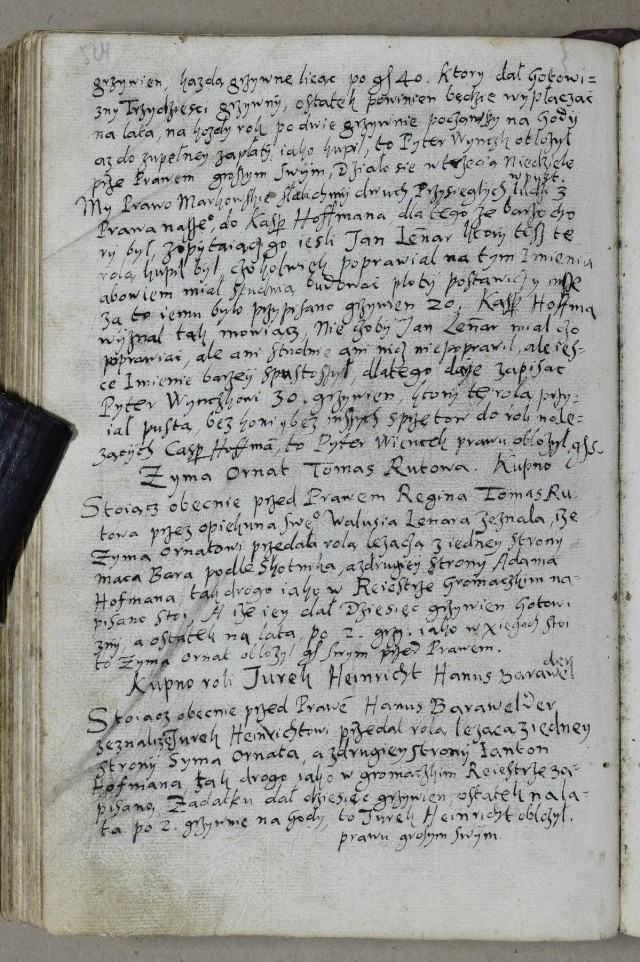 524
grzywien, kazdą grzywnę licąc po gł 40. Ktory dał Gotowi=
zny Trzydziesci grzywny, ostatek powinien będzie wypłaczać
na lata, na kozdy rok po dwie grzywnie począwszy na Gody
aż do zupełney zapłaty iako kupił, to Pyter Wynczk obłożył
prze Prawem groszym swym, Działo się w trzecią Niedzielę
w pust.
My Prawo Markowskie słalichmy dwuch Przysięglych ludzi z
Prawa naszeo, do Kasp Hoffmana dla tego że barzo cho
ry był, zopytaiącz go iesli Jan Lenar ktory tesz tę
rolą kupił był, czokolwiek poprawiał na tym Imieniu
abowiem miał studnią budować płoty postawić y insze
za to iemu było przypisano grzywien 20. Kasp Hoffma
wyznał tak mowiącz, Nie czoby Jan Lenar miał czo
poprawiać, ale ani studnie ani nicz nie poprawił, ale ies=
cze Imienie barzey spustoszył, dlatego daię zapisać
Pyter Wynczkowi 30. grzywien, ktory tę rolą przy=
iał pustą, bez koni y bez inszych sprzętow do roli nale=
żączych Casp Hoffmā, to Pyter Wiencek prawu obłożył głs.
Zyma Ornat Tomas Rutowa. Kupno
Stoiącz obecnie przed Prawem Regina Tomas Ru-
towa przez opiekuna sweo Walusia Lenara zeznała, iże
Zyma Ornatowi przedała rolą lezącą z iedney strony
Maca Bara podle Skotnika, a z drugiey strony Adama
Hofmana, tak drogo iako w Reiestrze Gromaczkim na=
pisano stoi, A iże iey dał Dziesięć grzywien Gotowi
zny, a ostatek na lata, po 2. grzy. iako w xięgach stoi
to Zyma Ornat obłożył gł swym przed Prawem.
Kupno roli Jurek Heinricht Hanus Barawel
der
Stoiącz obecnie przed Prawē Hanus Barawelder
zeznał iże Jurek Heinrichtowi przedał rolą leżącą z iedney
strony Syma Ornata, a z drugiey strony Janton
Hofmana, tak drogo iako w gromaczkim Reiestrze za=
pisano, Zadatku dał dziesięć grzywien, ostatek na la=
ta po 2. grzywnie na Gody, to Jurek Heinricht obłożył.
prawu groszym swym.